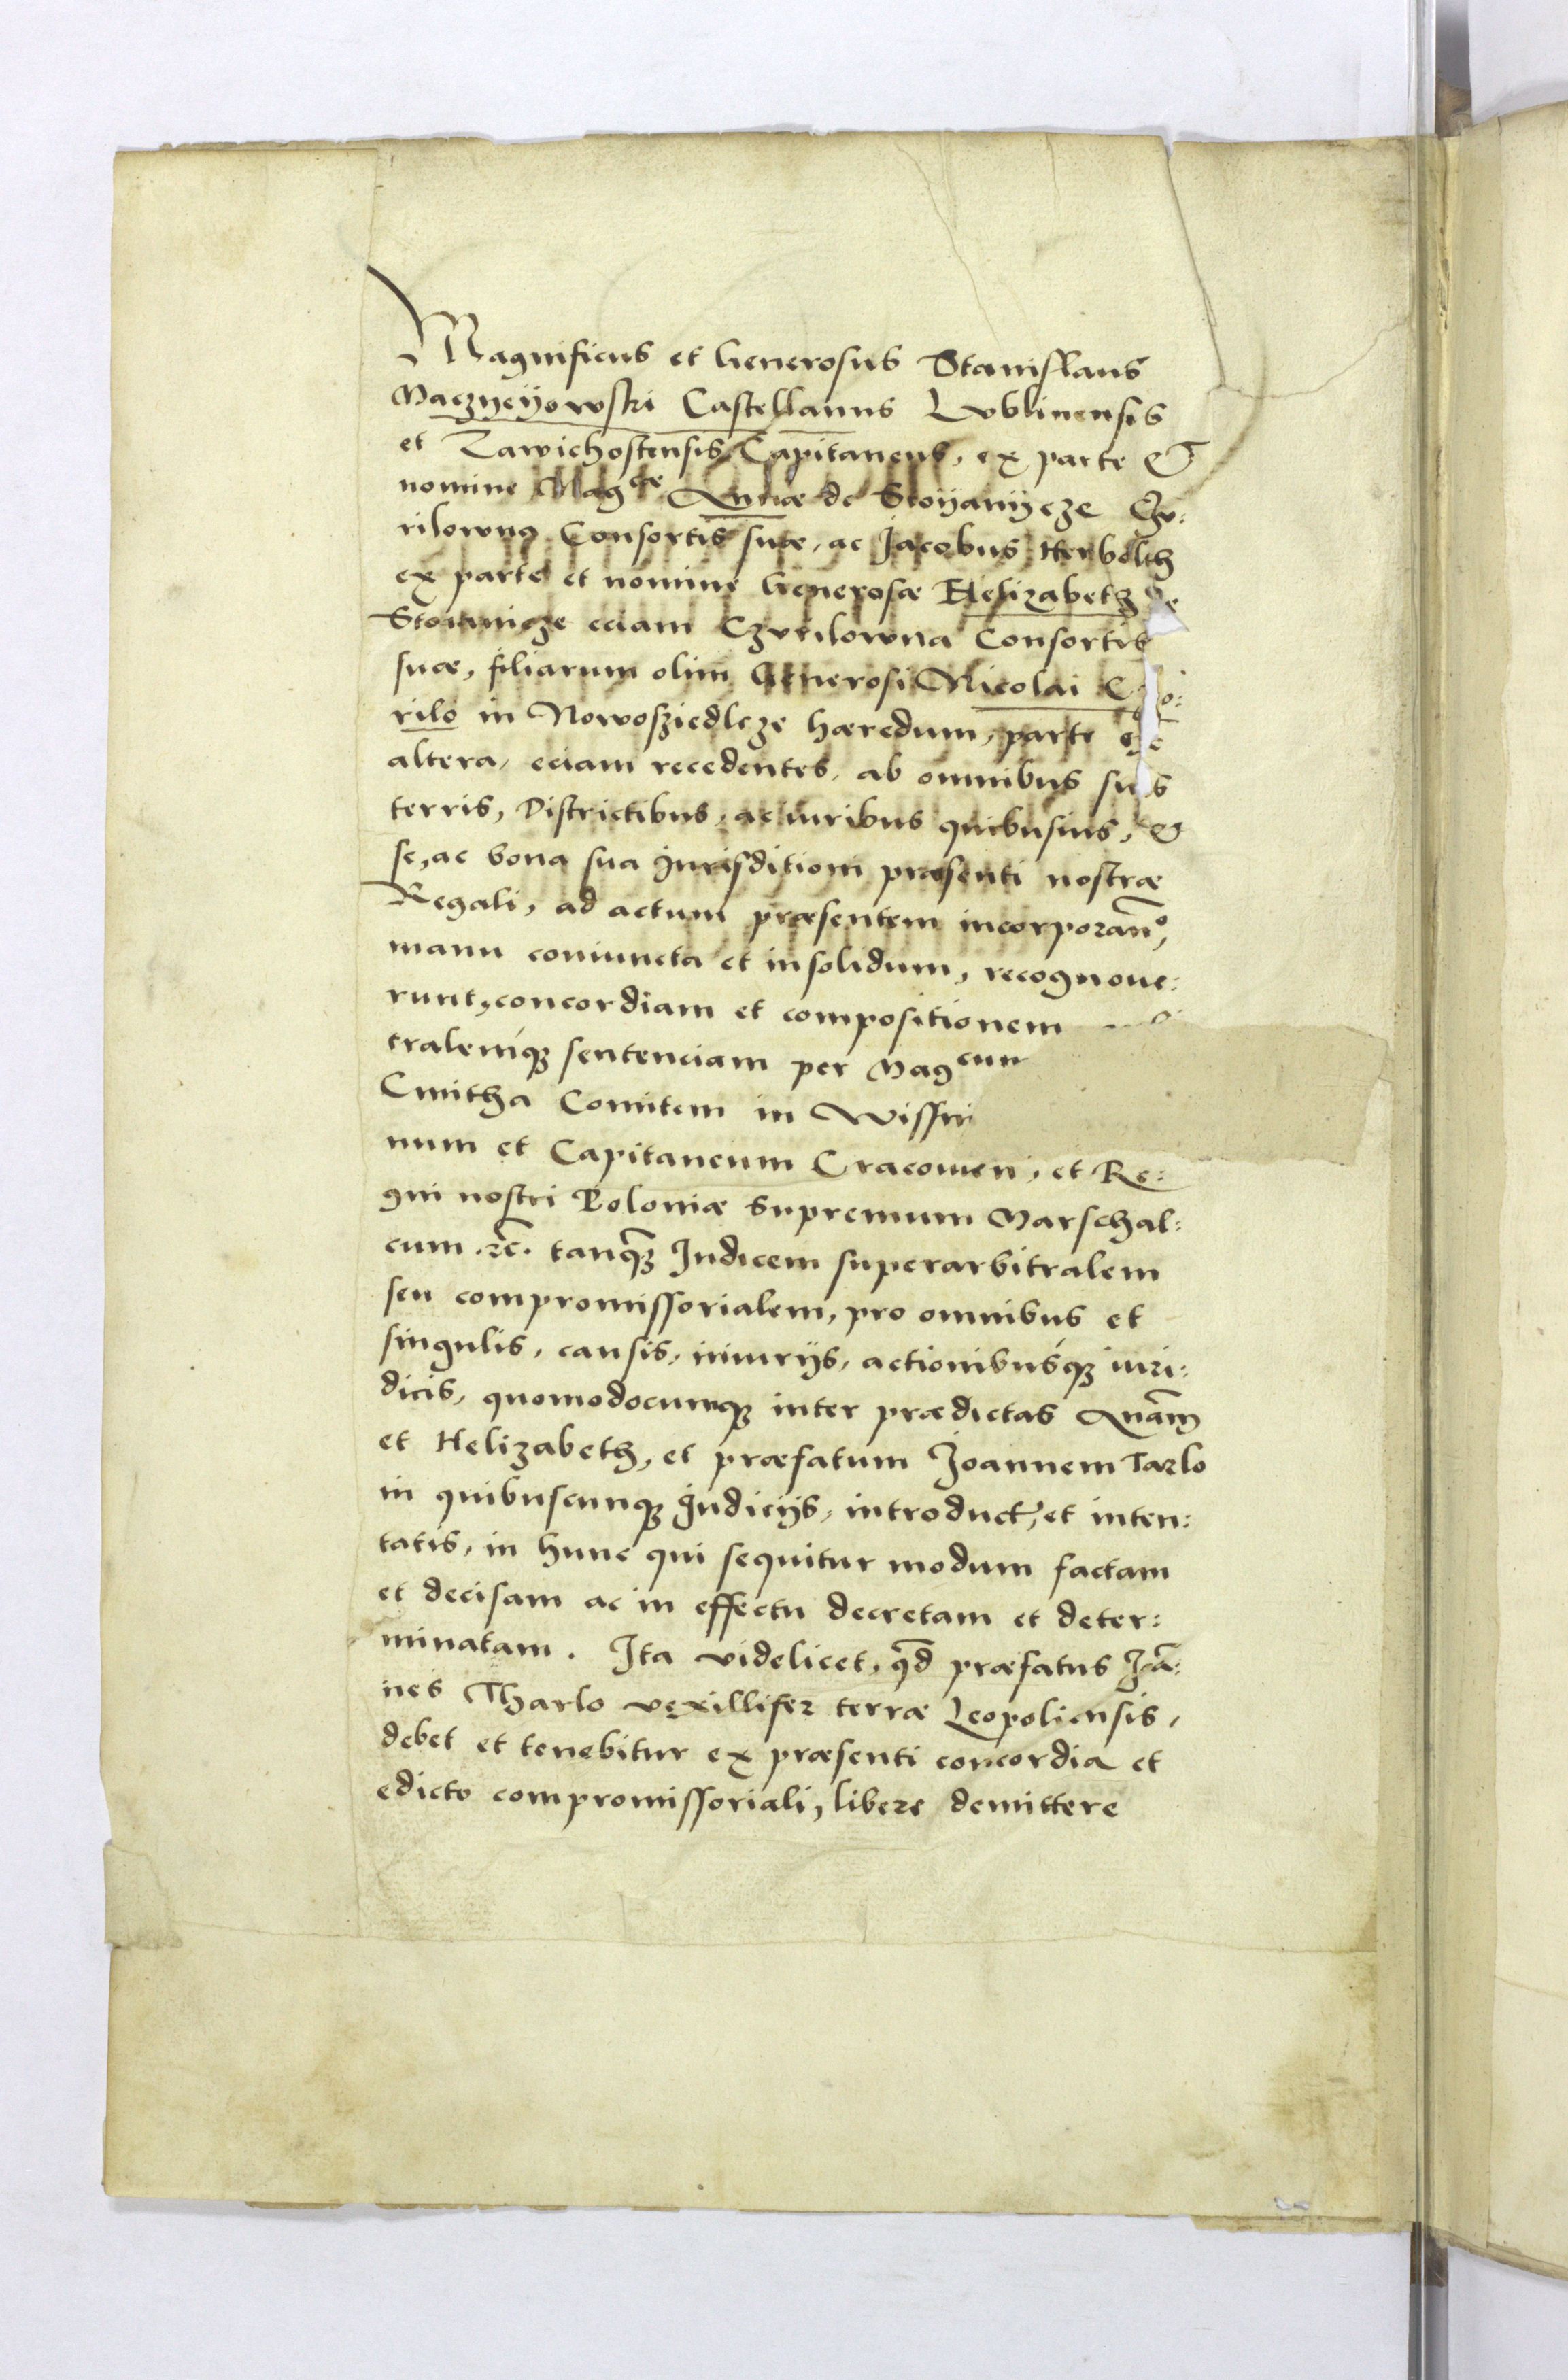 Magnificus et Generosus Stanislaus
Maczyeyowski Castellanus Lublinensis
et Zawichostensis Capitaneus, ex parte et
nomine Mag<sup>cae</sup> Annae de Stoyanycze Czu:
rilowna Consortis suae, ac Jacobus Herbolth
ex parte et nomine Generosae Helizabeth de
Stoianicze eciam Czurilowna Consortis
suae, filiarum olim Generosi Nicolai
rilo in Nowosziedlcze haeredum, parte ex
altera, eciam recedentes, ab omnibus suis
terris, Districtibus, ac iuribus quibusuis, et
se, ac bona sua Jurisditioni praesenti nostrae
Regali, ad actum praesentem incorporan̄o,
manu coniuncta et insolidum, recognoue:
runt, concordiam et compositionem
tralemq̃ȝ sentenciam per Mag<sup>cum</sup>
Cmitha Comitem in Wissni
num et Capitaneum Cracouien, et Re:
gni nostri Poloniae Supremum Marschal:
cum .etc̃. tanq̃ȝ Judicem superarbitralem
seu compromissorialem, pro omnibus et
singulis, causis, iniurijs, actionibusqȝ iuri:
dicis, quomodocunqȝ inter praedictas Annam
et Helizabeth, et praefatum Joannem Tarlo
in quibuscunqȝ Judicijs, introduct, et inten:
tatis, in hunc qui sequitur modum factam
et decisam ac in effectu decretam et deter:
minatam. Ita videlicet, q̃d praefatus Joã:
nes Tharlo vexillifer terrae Leopoliensis,
debet et tenebitur ex praesenti concordia et
edicto compromissoriali, libere demittere